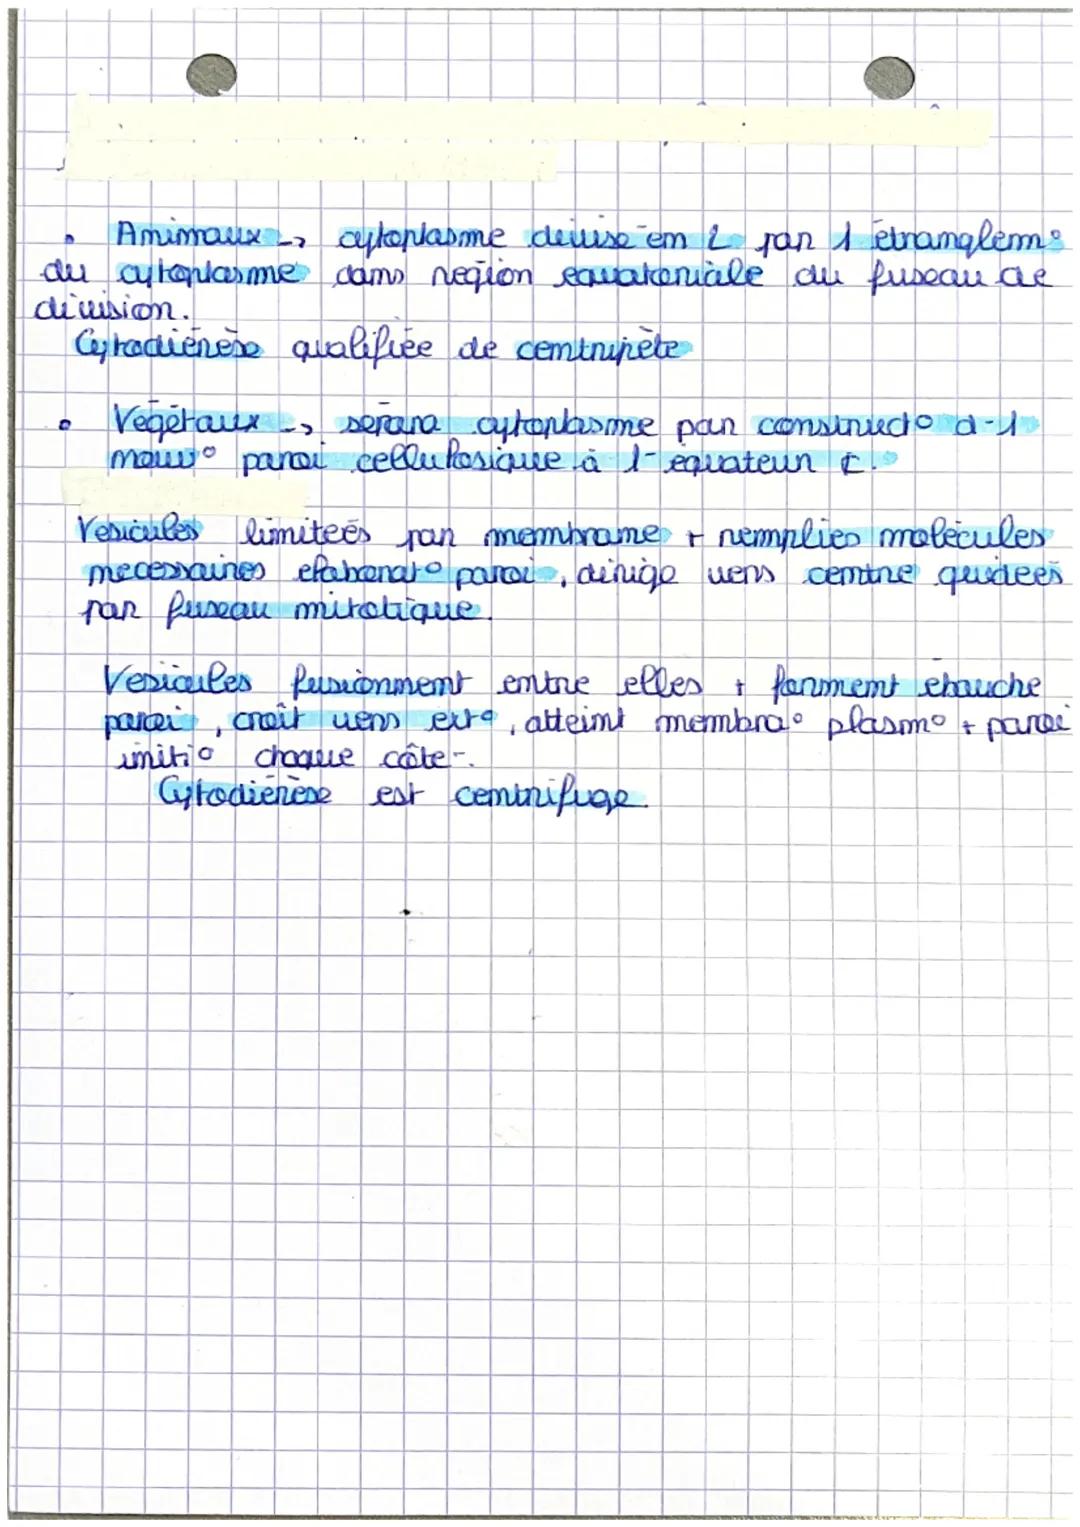 • Animaux → cytoplasme divise en 2 par 1 étranglem°
du cytoplasme dans région équatoriale du fuseau de
division.
Cytodiérèse qualifiée de centripète
• Végétaux → sépara° cytoplasme par constructo d-1
nouv° paroi cellulosique à l-équateur C.
Vésicules limitées par membrane + remplies molécules
nécessaires élaborato paroi, dirige vers centre guidées
par fuseau mitotique.
Vésicules fusionnent entre elles + forment ébauche
paroi, croît vers ext°, atteint membra° plasm° + paroi
initi° chaque côté-.
Cytodiérèse est centrifuge.